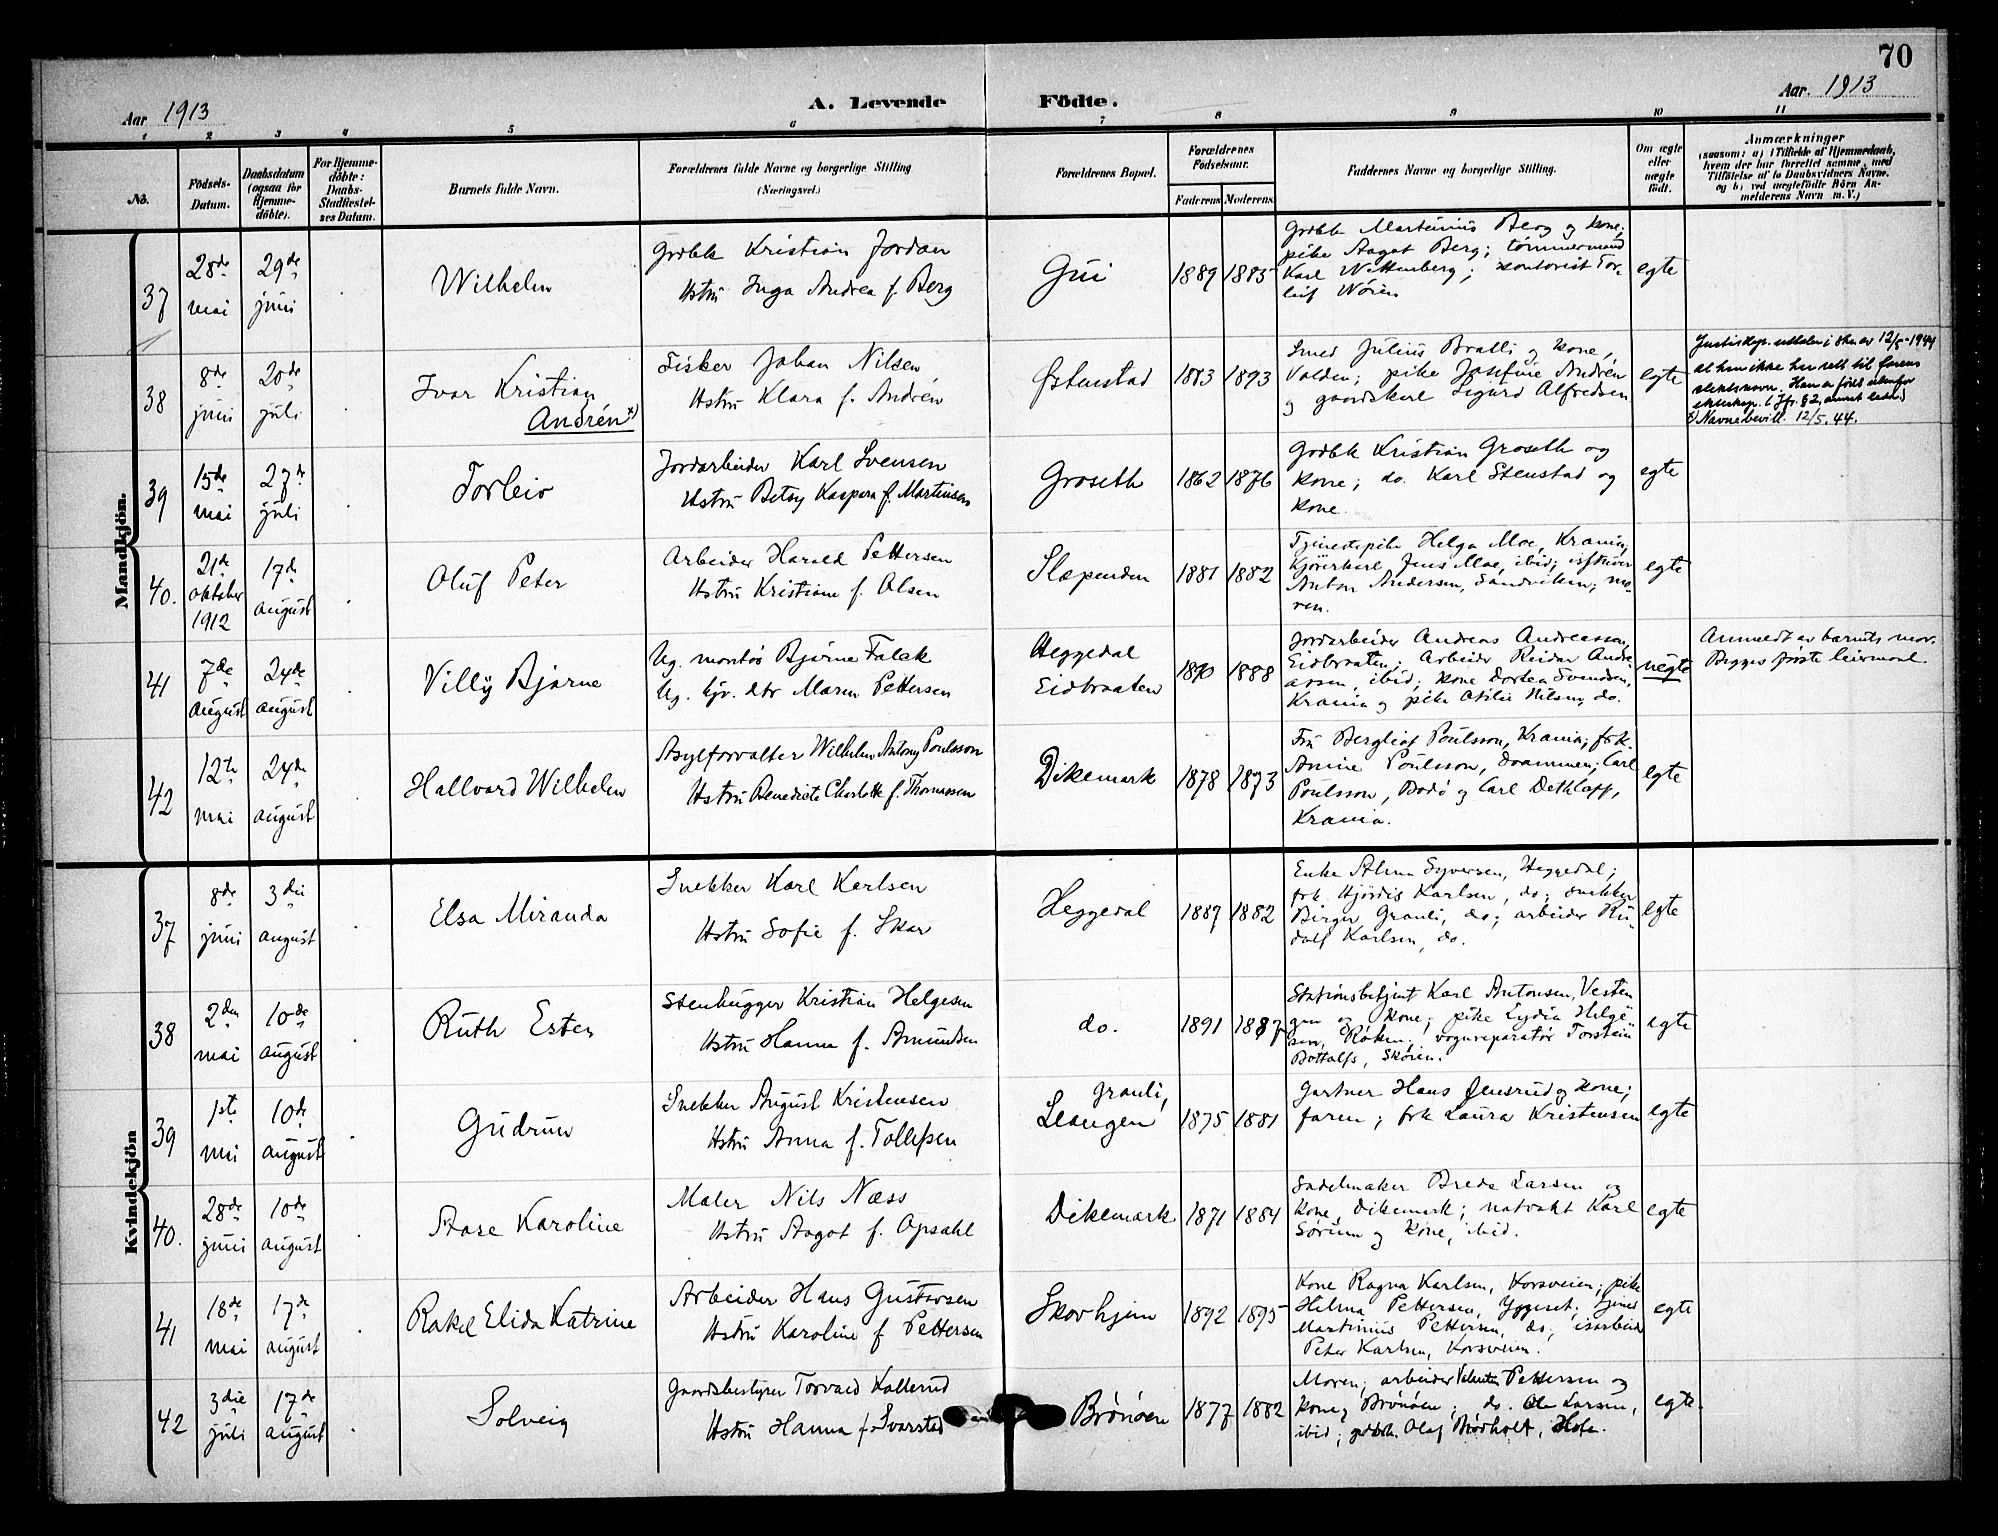 70
Aar 1913
A. Levende
Födte.
Aar. 1913
1 2 3 4 5 6 7 8 9 10 11
No.
Födsels-
Datum.
Daabsdatum
(ogsaa for
Hjemme-
döbte).
For Hjemme-
döbte:
Daabs-
Stadfæstel-
ses Datum.
Barnets fulde Navn.
Forældrenes fulde Navne og borgerlige Stilling
(Næringsvei.)
Forældrenes Bopæl.
Forældrenes
Födselsaar.
Faderens
Moderens
Faddernes Navne og borgerlige Stilling.
Om ægte
eller
uægte
födt.
Anmærkninger
(saasom: a) i Tilfælde af Hjemmedaab,
hvem der har forrettet samme, med
Tilföielse af to Daabsvidners Navne.
og b) ved uægtefödte Börn An-
melderens Navn m. V.)
Mandkjön.
37
28de
mai
29de
juni
Wilhelm
Grdbk Kristian Jordan
Hstru Inga Andrea f. Berg
Gui
1889
1885
Grdbk Martinius Berg og kone;
pike Aagot Berg; tømmermand
Karl Wittenberg; kontorist Tor-
leif Nøren
egte
38
8de
juni
20de
juli
Ivar Kristian
Andrén +)
Fisker Johan Nilsen
Hstru Klara f. Andrén
Østenstad
1883
1893
Smed Julius Bratli og kone,
Volden; pike Josefine Andrén
og gaardskarl Sigurd Alfredsen
egte
Justisdep. uttaler i skr. av 12/5-1944
at han ikke har rett til farens
slektsnavn. Han er født utenfor
ekteskap. (Jfr. § 2, annet ledd.)
+) Navnebevill. 12/5.44.
39
15de
mai
27de
juli
Torleiv
Jordarbeider Karl Svensen
Hstru Betsy Kaspara f. Martinsen
Groseth
1862
1876
Grdbk Kristian Groseth og
kone; do. Karl Stenstad og
kone.
egte
40.
21de
oktober
1912
17de
august
Oluf Peter
Arbeider Harald Pettersen
Hstru Kristiane f. Olsen
Slæpenden
1881
1882
Tjenestepike Helga Moe, Krania;
kjørerkarl Jens Moe, ibid;
Anton Andersen, Sandviken; mo-
ren.
egte
41
7de
august
24de
august
Villy Bjarne
Ug. montør Bjarne Falck
Ug. Maren Pettersen
Heggedal
Eidbraaten
1890
1888
Jordarbeider Andreas Andreassen
Eidbraaten; Arbeider Reidar Andre-
assen, ibid; kone Dortea Svendsen,
Krania og pike Otilie Nilsen, do.
uegte
Anmeldt av barnets mor.
Begges første leiermaal.
42
12te
mai
24de
august
Hallvard Wilhelm
Asylforvalter Wilhelm Antony Poulsson
Hstru Benedicte Charlotte f. Thomassen
Dikemark
1878
1873
Fru Bergliot Poulsson, Krania; frk.
Annine Poulsson, Drammen; Carl
Poulsson, Bodø og Carl Dethloff,
Krania.
egte
Kvindekjön
37
8de
juni
3die
august
Elsa Miranda
Snekker Karl Karlsen
Hstru Sofie f. Skar
Heggedal
1887
1882
Enke Alma Syversen, Heggedal;
frk. Hjørdis Karlsen, do; snekker
Birger Granli, do; arbeider Ru-
dolf Karlsen, do.
egte
38
2den
mai
10de
august
Ruth Ester
Stenhugger Kristian Helgesen
Hstru Hanna f. Amundsen
do.
1891
1887
Stationsbetjent Karl Antonsen, Vesten-
gen og kone; pike Lydia Helge-
sen, Røken; vognreparatør Torstein
Bottolfs, Skøien.
egte
39
1ste
mai
10de
august
Gudrun
Snekker August Kristensen
Hstru Anna f. Tollefsen
Granli,
Leangen
1875
1881
Gartner Hans Jensrud og kone;
faren; frk Laura Kristensen
egte
40.
28de
juni
10de
august
Aase Karoline
Maler Nils Næss
Hstru Aagot f. Opsahl
Dikemark
1871
1884
Sadelmaker Brede Larsen og
kone, Dikemark; natvakt Karl
Sørum og kone, ibid.
egte
41
18de
mai
17de
august
Rakel Elida Katrine
Arbeider Hans Gustavsen
Hstru Karoline f Pettersen
Skovhjem
1892
1895
Kone Ragna Karlsen, Korsveien; pike
Helma Pettersen, Yggeset;
Martinius Pettersen, do; isarbeider
Peter Karlsen, Korsveien.
egte
42
3die
juli
17de
august
Solveig
Gaardsbestyrer Torvald Kallerud
Hstru Hanna f. Svarstad
Brønøen
1877
1882
Moren; arbeider Valentin Pettersen og
kone, Brønøen; do. Ole Larsen,
ibid; grdbk. Olaf Brødholt, Hole.
egte.